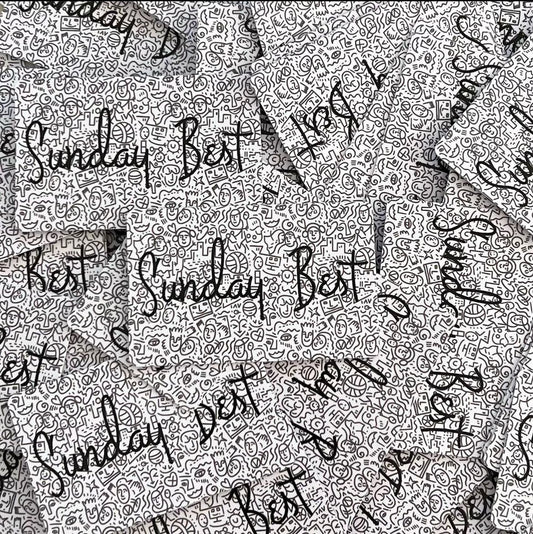 Sunday
Sunday Best
Best
Sunday Best
Best
Sunday Best
Sund
Best
Sunday Best
Best